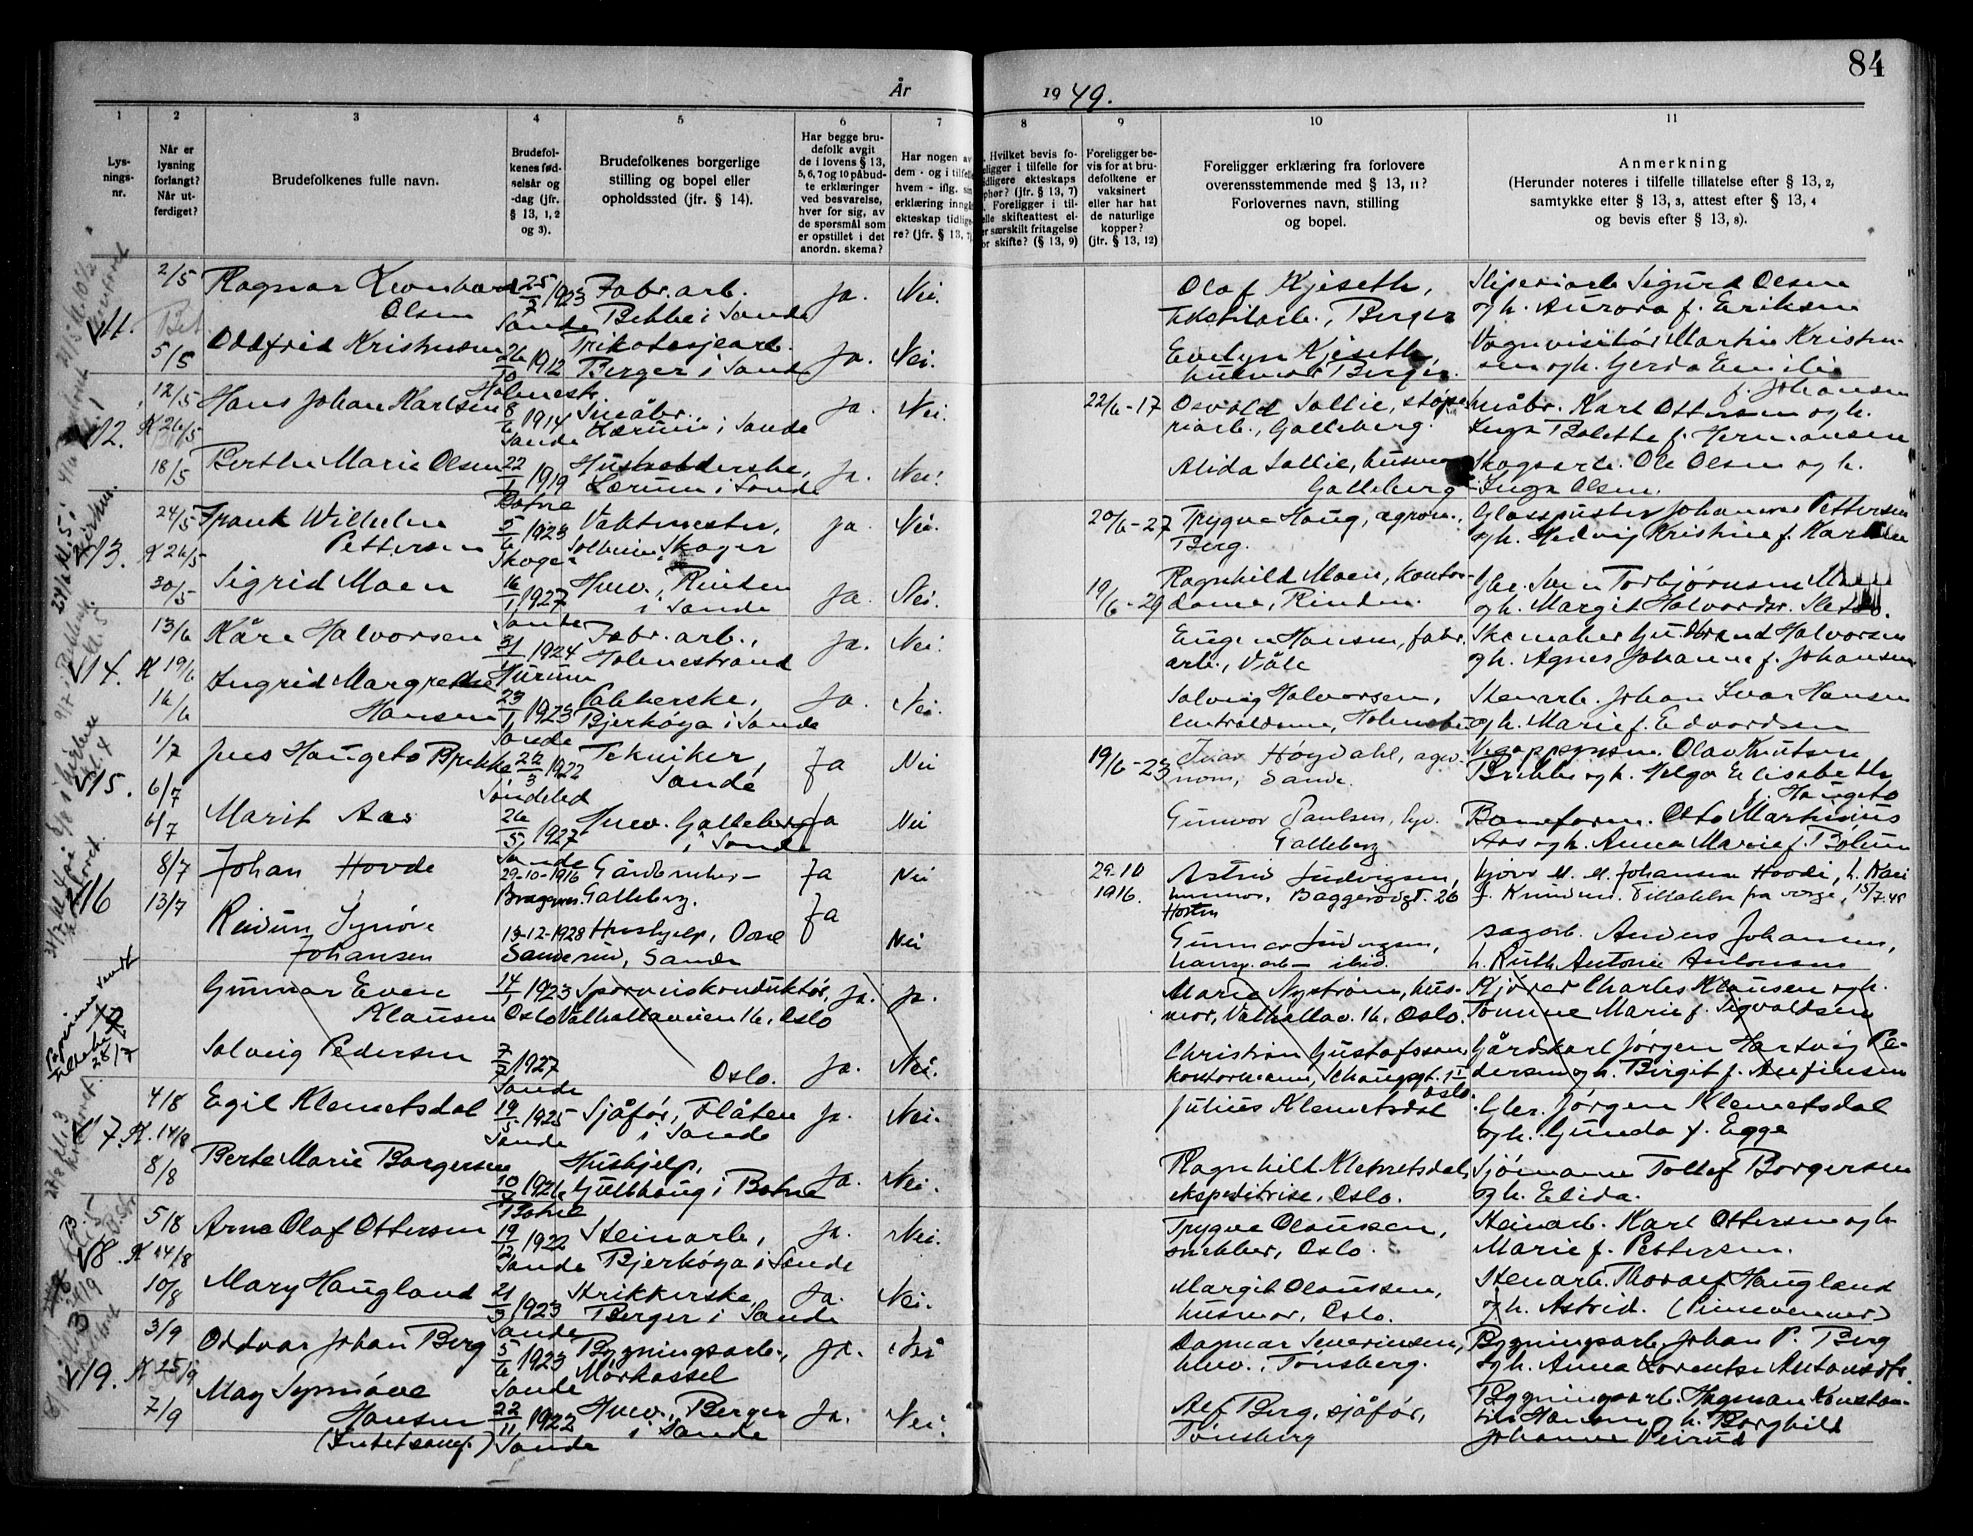 84
År
19 49.
1
2
3
4
5
6
7
8
9
10
11
Lys-
nings-
nr.
Når er
lysning
forlangt?
Når ut-
ferdiget?
Brudefolkenes fulle navn.
Brudefol-
kenes fød-
selsår og
-dag (jfr.
§ 13, 1, 2
og 3).
Brudefolkenes borgerlige
stilling og bopel eller
opholdssted (jfr. § 14).
Har begge bru-
defolk avgit
de i lovens § 13,
5, 6, 7 og 10 påbud-
te erklæringer
ved besvarelse,
hver for sig, av
de spørsmål som
er opstillet i det
anordn. skema?
Har nogen av
dem - og i tilfelle
hvem - iflg. sin
erklæring inngått
ekteskap tidlige-
re? (jfr. § 13, 7)
Hvilket bevis fo-
religger i tilfelle for
tidligere ekteskaps
ophør? (jfr. § 13, 7)
Foreligger i til-
felle skifteattest el-
ler særskilt fritagelse
for skifte? (§ 13, 9)
Foreligger be-
vis for at bru-
defolkene er
vaksinert
eller har hat
de naturlige
kopper?
(jfr. § 13, 12)
Foreligger erklæring fra forlovere
overensstemmende med § 13, 11?
Forlovernes navn, stilling
og bopel.
Anmerkning
(Herunder noteres i tilfelle tillatelse efter § 13, 2,
samtykke efter § 13, 3, attest efter § 13, 4
og bevis efter § 13, 8).
11.
2/5
Ragnar Leonhard
Olsen
25/5 1923
Sande
Fabr. arb.
Bekke i Sande
Ja.
Nei.
Olaf Kjeseth,
Tekstilarb., Berger
Sliperiarb. Sigurd Olsen
og h. Aurora f. Eriksen
5/5
Oddfrid Kristensen
26/10 1912
Holmestr.
Trikotasjearb.
Berger i Sande
Ja.
Nei.
Evelyn Kjeseth,
husmor Berger.
Vognvisitør Martin Kristen-
sen og h. Gerda Emilie
f. Johansen
12.
12/5
K 26/5
Hans Johan Karlsen
8/6 1914
Sande
Småbr.,
Lærum i Sande
Ja.
Nei.
22/6-17
Osvald Sollie, støpe-
riarb., Galleberg.
Småbr. Karl Ottersen og h.
Inga Bolette f. Hermansen
18/5
Berthe Marie Olsen
22/1 1919
Botne
Husholderske,
Lærum i Sande
Ja.
Nei.
Alida Sollie, husmor
Galleberg
Skogsarb. Ole Olsen og h.
Inga Olsen.
13.
24/5
K 26/5
Frank Wilhelm
Pettersen
5/6 1923
Skoger
Vaktmester,
Solheim, Skoger
Ja.
Nei.
20/6-27
Trygve Haug, agron.,
Berg.
Glasspuster Johannes Pettersen
og h. Hedvig Kristine f. Karlsen
30/5
Sigrid Moen
16/1 1927
Sande
Husv., Rinden
i Sande
Ja.
Nei.
19/6-29
Ragnhild Moen, kontor-
dame, Rinden.
Gbr. Sven Torbjørnsen Moen
og h. Margit Halvordsr.
14.
13/6
K 19/6
Kåre Halvorsen
31/1 1924
Hurum
Fabr. arb.,
Holmestrand
Ja.
Nei.
Eugen Hansen, fabr.
arb., Våle
Skomaker Gudbrand Halvorsen
og h. Agnes Johanne f. Johansen
16/6
Ingrid Margrethe
Hansen
23/1 1923
Sande
Pakkerske,
Bjerkøya i Sande
Ja.
Nei.
Solveig Halvorsen,
Holmsbu
Stenarb. Johan Ivar Hansen
og h. Marie f. Edvardsen
15.
1/7
6/7
Jens Haugeto Brekke
22/3 1922
Søndeled
Tekniker,
Sande
Ja
Nei
19/6-23
Ivar Høydahl, agro-
nom, Sande.
Veioppsynsm. Olav Knutsen
Brekke og h. Helga Elisabeth
f. Haugeto
6/7
Marit Aas
26/5 1927
Sande
Husv. Galleberg
i Sande
Ja
Nei
Gunvor Paulsen,
Galleberg
Baneform. Otto Martinius
Aas og h. Anna Marie f. Bølum
16
8/7
Johan Hovde
29-10-1916
Bragernes
Gårdbruker
Galleberg.
Ja
Nei
29.10
1916.
Astrid Ludvigsen,
husmor, Baggerødgt. 26
Horten
Kjører M. M. Johansen Hovde, h. Kari
f. Knudsen. Tillatelse fra verge, 15/7.48
13/7
Reidun Synøve
Johansen
13-12-1928
Sande
Hushjelp,
Sande
Ja
Nei
Gunnar Ludvigsen,
ibid.
Sagarb. Anders Johansen,
h. Ruth Antonie Antonsen
Gunnar Even
Klausen
14/1 1923
Oslo
Sporveiskonduktør,
Valhallaveien 16, Oslo
Ja.
Ja.
Marie Nystrøm, hus-
mor, Valhallav. 16, Oslo.
Kjører Charles Klausen og h.
Tomine Marie f. Sigvaldsen
Solveig Pedersen
7/2 1927
Sande
Oslo.
Ja.
Nei.
Christian Gustafsson,
kontormann, Schougsgt. 1 I
Oslo.
Gårdkarl Jørgen Hartvig Pe-
dersen og h. Birgit f. Anfinsen
17.
4/8
K. 14/8
Egil Klemetsdal
19/5 1925
Sande
Sjåfør, Flåten
i Sande
Ja.
Nei.
Julius Klemetsdal
Gbr. Jørgen Klemetsdal
og h. Gunda f. Egge
8/8
Berte Marie Borgersen
10/7 1926
Botne
Hushjelp,
Gullhaug i Botne
Ja.
Nei.
Ragnhild Klemetsdal,
ekspeditrise, Oslo.
Sjømann Tollef Borgersen
og h. Elida.
18.
5/8
K 14/8
Arne Olaf Ottersen
19/12 1922
Sande
Steinarb.,
Bjerkøya i Sande
Ja.
Nei.
Trygve Olaussen,
snekker, Oslo.
Steinarb. Karl Ottersen og h.
Marie f. Pettersen.
10/8
Mary Haugland
21/3 1923
Sande
Strikkerske,
Berger i Sande
Ja.
Nei.
Margit Olaussen,
husmor, Oslo.
Stenarb. Thoralf Haugland
og h. Astrid.
19.
3/9
K 25/9
Oddvar Johan Berg
5/6 1923
Sande
Bygningsarb.,
Mørkassel
Ja.
Nei
Dagmar Severinsen,
husv., Tønsberg.
Bygningsarb. Johan P. Berg
og h. Anna Lorentse Antonsdtr.
7/9
May Synnøve
Hansen
22/11 1922
Sande
Husv., Berger
i Sande
Ja.
Nei.
Alf Berg, sjåfør,
Tønsberg
Bygningsarb. Hagman Konstan-
tin Hansen og h. Borghild
Johanne Veirud